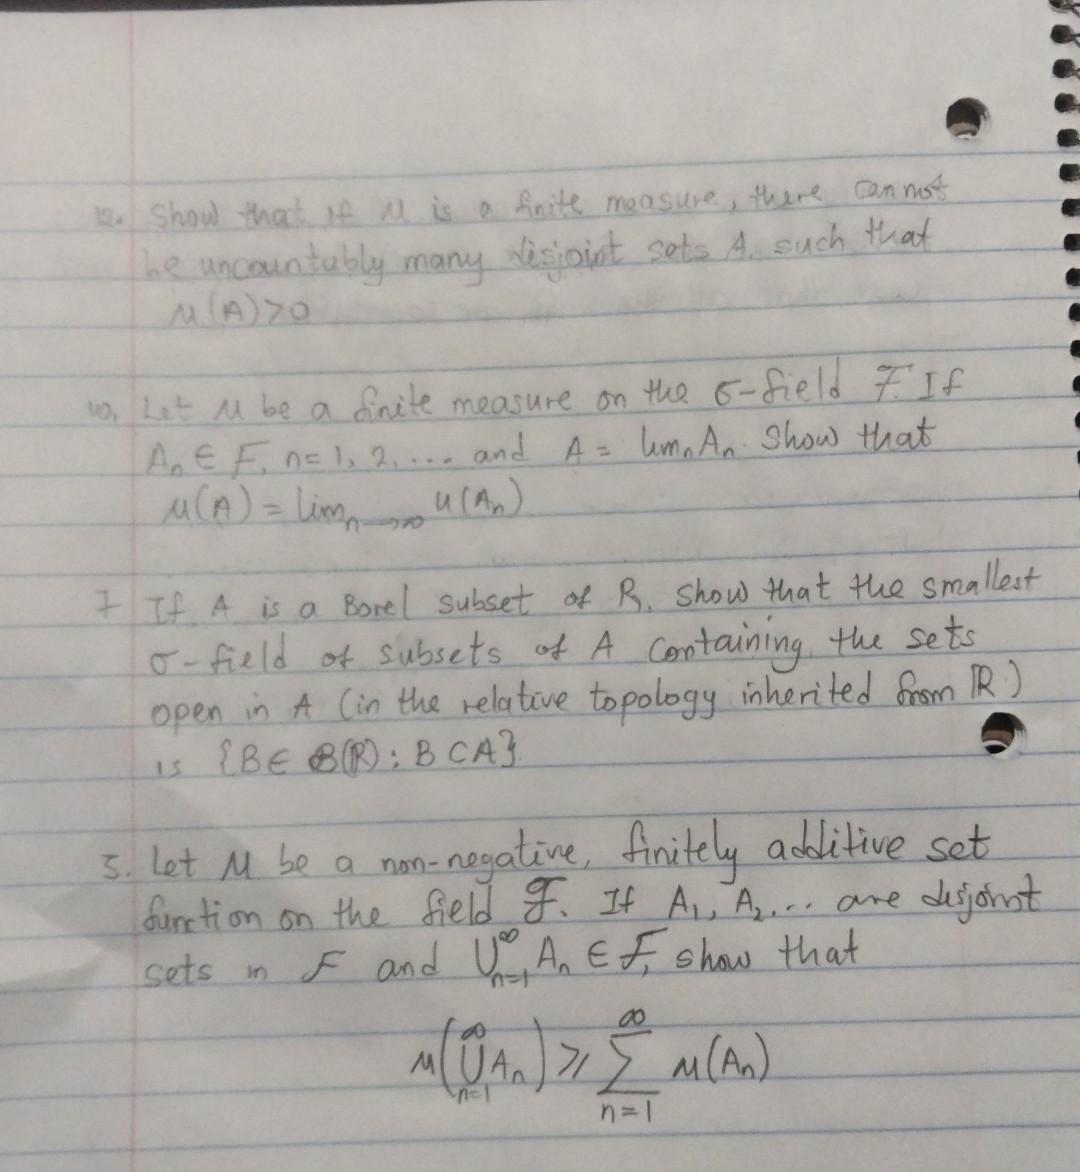 12. Show that if μ is a finite measure, there cannot
be uncountably many disjoint sets A such that
μ(A)>0
10. Let μ be a finite measure on the σ-field F. If
An ∈ F, n=1, 2, ... and A = limn An. Show that
μ(A) = lim n→∞ u(An)
7 If A is a Borel subset of R. Show that the smallest
σ-field of subsets of A containing the sets
open in A (in the relative topology inherited from ℝ)
is {B∈ B(ℝ): B⊂A}.
5. Let μ be a non-negative, finitely additive set
function on the field F. If A1, A2,... are disjoint
sets in F and ⋃∞n=1 An ∈ F, show that
μ(⋃∞n=1 An) ⩾ ∑∞n=1 μ(An)